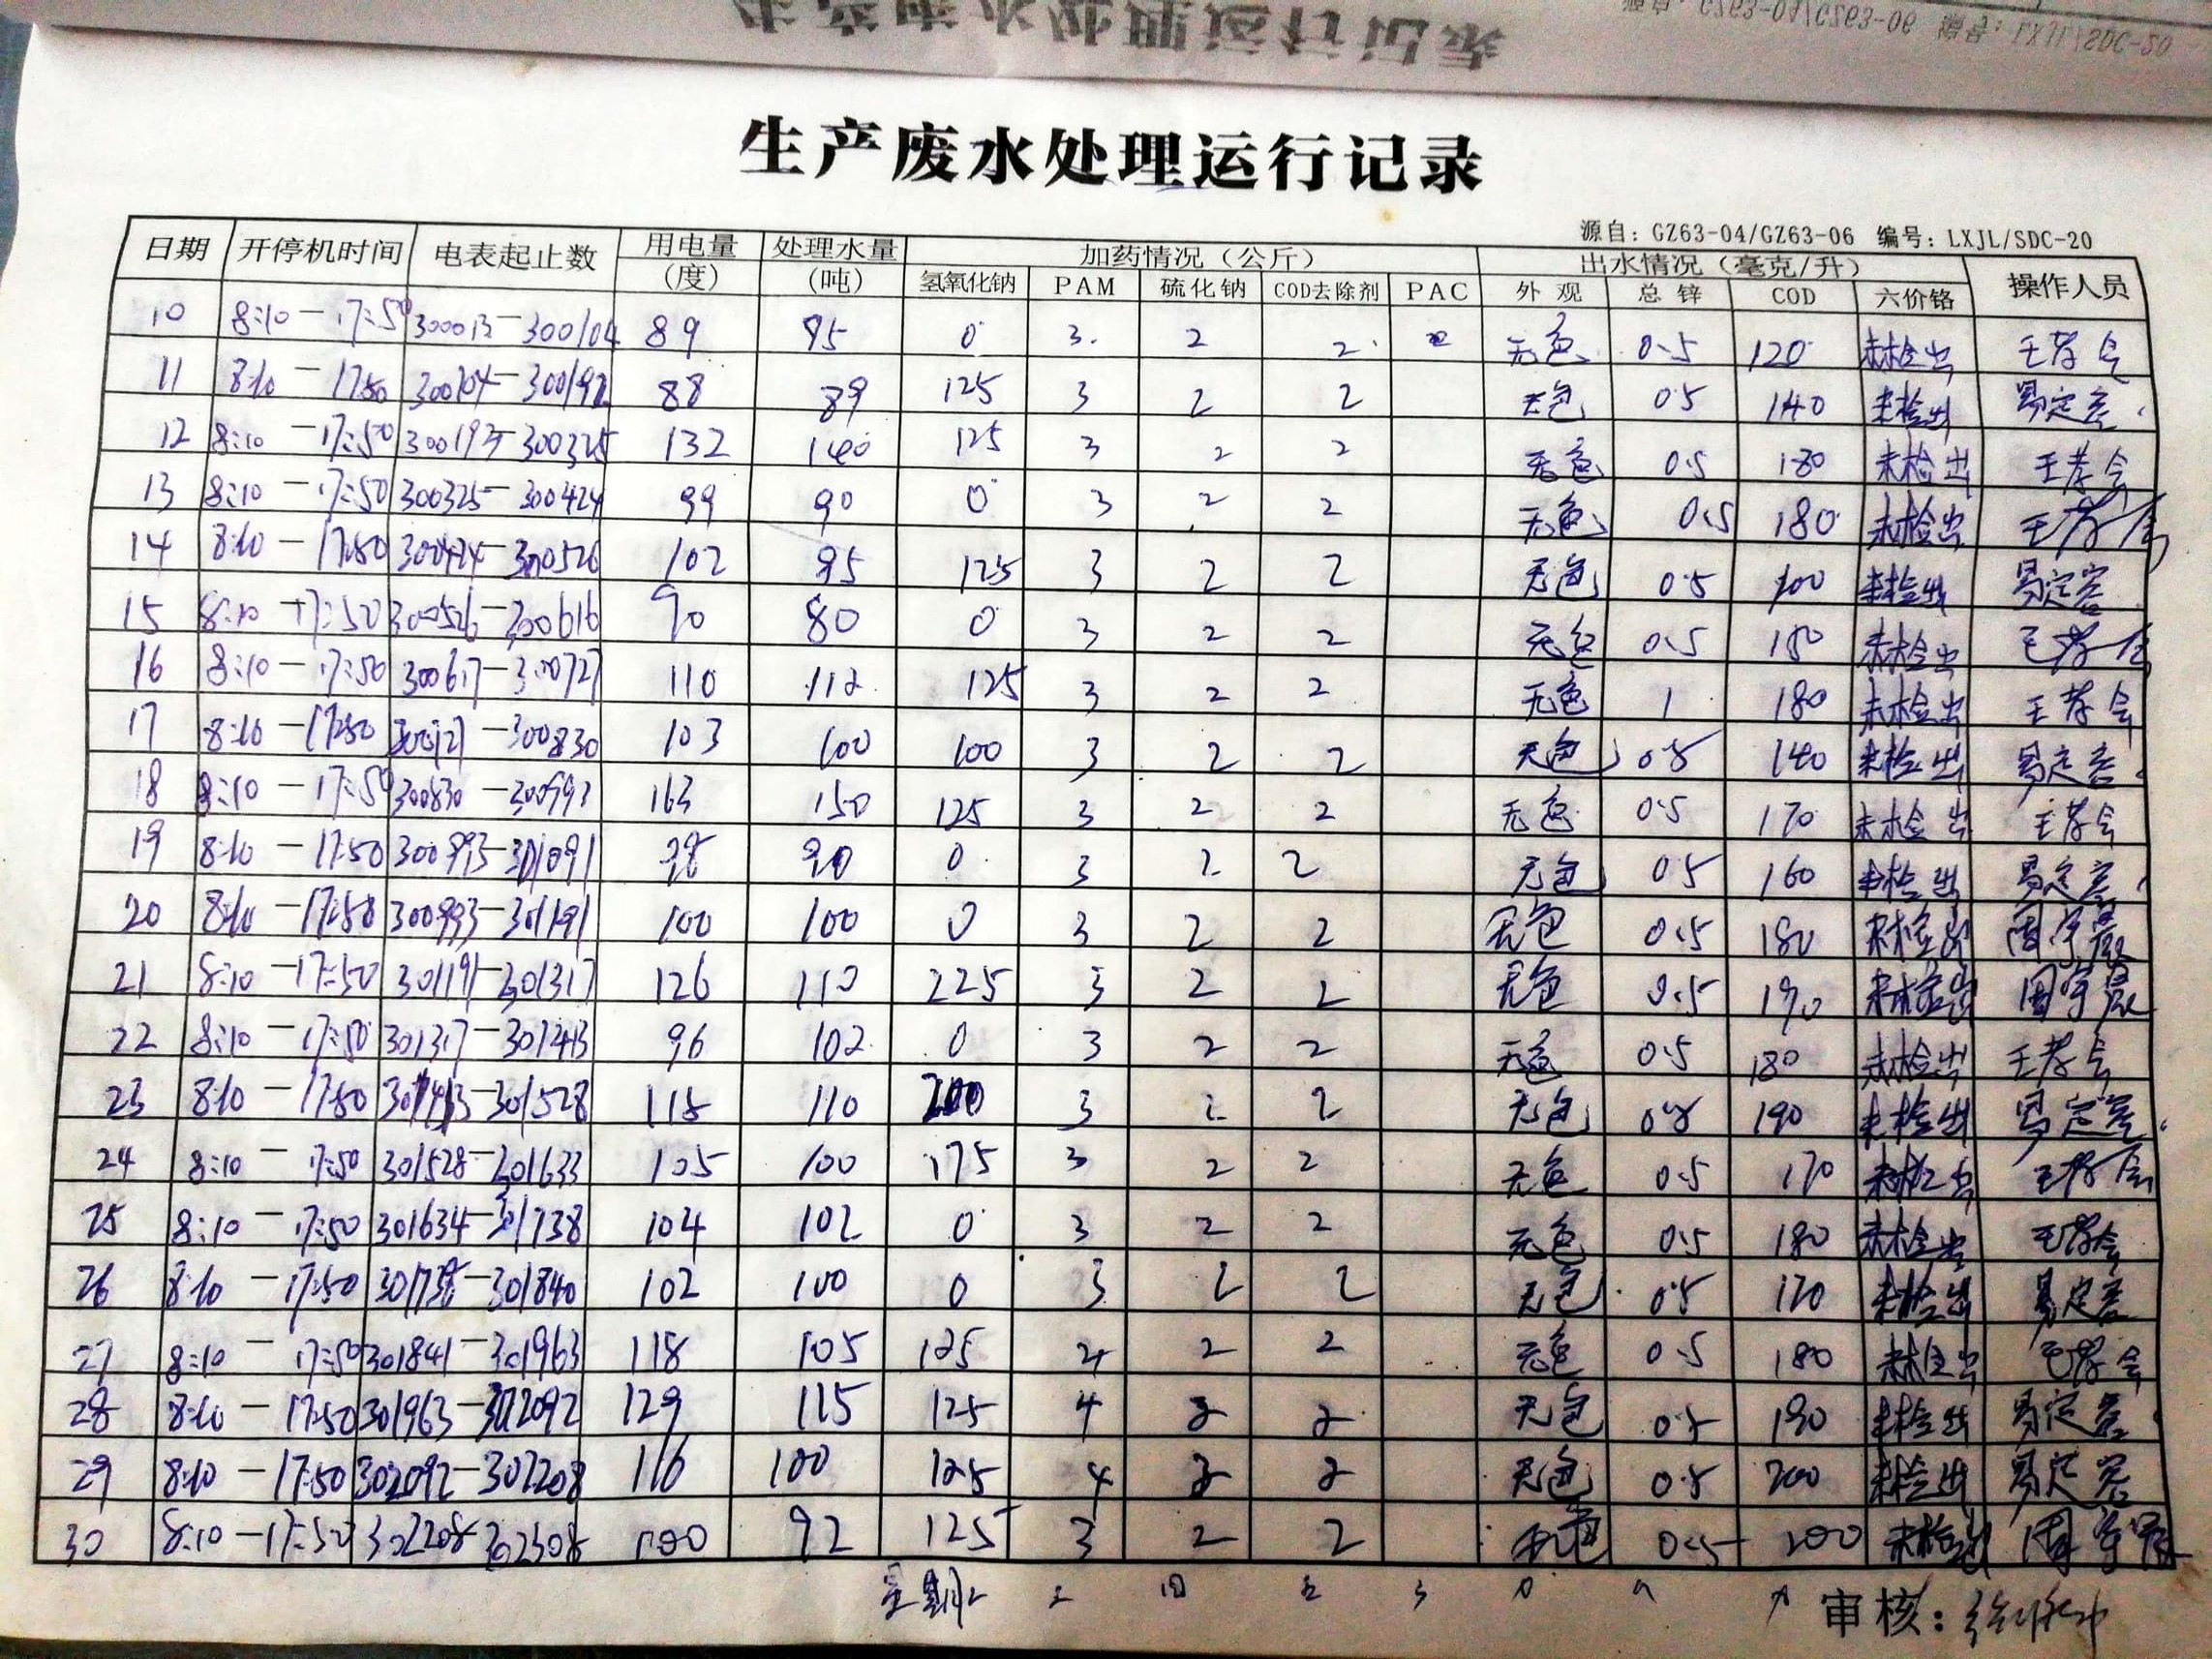 生产废水处理运行记录
源自：GZ63-04/GZ63-06 编号：LXJL/SDC-20
日期 开停机时间 电表起止数 用电量(度) 处理水量(吨) 加药情况（公斤） 出水情况（毫克/升） 操作人员
氢氧化钠 PAM 硫化钠 COD去除剂 PAC 外观 总锌 COD 六价铬
10 8:10-17:50 300013-300104 89 95 0 3 2 2 无色 0.5 120 未检出 王孝会
11 8:10-17:50 300104-300192 88 89 125 3 2 2 无色 0.5 140 未检出 易定容
12 8:10-17:50 300193-300325 132 140 125 3 2 2 无色 0.5 180 未检出 王孝会
13 8:10-17:50 300325-300424 99 90 0 3 2 2 无色 0.5 180 未检出 王孝会
14 8:10-17:50 300424-300526 102 95 125 3 2 2 无色 0.5 100 未检出 易定容
15 8:10-17:50 300526-300616 90 80 0 3 2 2 无色 0.5 180 未检出 王孝会
16 8:10-17:50 300617-300727 110 112 125 3 2 2 无色 1 180 未检出 王孝会
17 8:10-17:50 300727-300830 103 100 100 3 2 2 无色 0.5 140 未检出 易定容
18 8:10-17:50 300830-300993 163 150 125 3 2 2 无色 0.5 170 未检出 王孝会
19 8:10-17:50 300993-301091 98 90 0 3 2 2 无色 0.5 160 未检出 易定容
20 8:10-17:50 300993-301191 100 100 0 3 2 2 无色 0.5 180 未检出 周宇晨
21 8:10-17:50 301191-301317 126 110 225 3 2 2 无色 0.5 190 未检出 周宇晨
22 8:10-17:50 301317-301413 96 102 0 3 2 2 无色 0.5 180 未检出 王孝会
23 8:10-17:50 301413-301528 115 110 200 3 2 2 无色 0.5 190 未检出 易定容
24 8:10-17:50 301528-301633 105 100 175 3 2 2 无色 0.5 170 未检出 王孝会
25 8:10-17:50 301634-301738 104 102 0 3 2 2 无色 0.5 180 未检出 王孝会
26 8:10-17:50 301738-301840 102 100 0 3 2 2 无色 0.5 170 未检出 易定容
27 8:10-17:50 301841-301963 118 105 125 4 2 2 无色 0.5 180 未检出 王孝会
28 8:10-17:50 301963-302092 129 115 125 4 2 2 无色 0.5 190 未检出 易定容
29 8:10-17:50 302092-302208 116 100 125 4 2 2 无色 0.5 200 未检出 易定容
30 8:10-17:50 302208-302308 100 92 125 3 2 2 无色 0.5 200 未检出 周宇晨
审核：